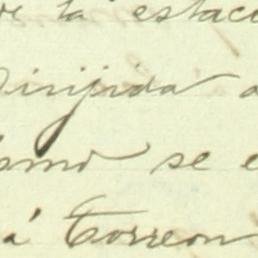 la estaci
Dirijida a
ismo se e
á Torreon